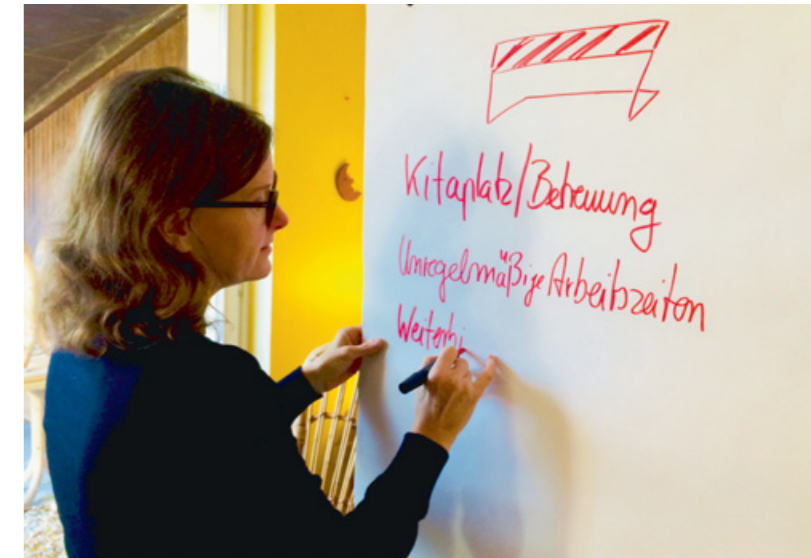 Kitaplatz/Betreuung
Unregelmäßige Arbeitszeiten
Weiterbi